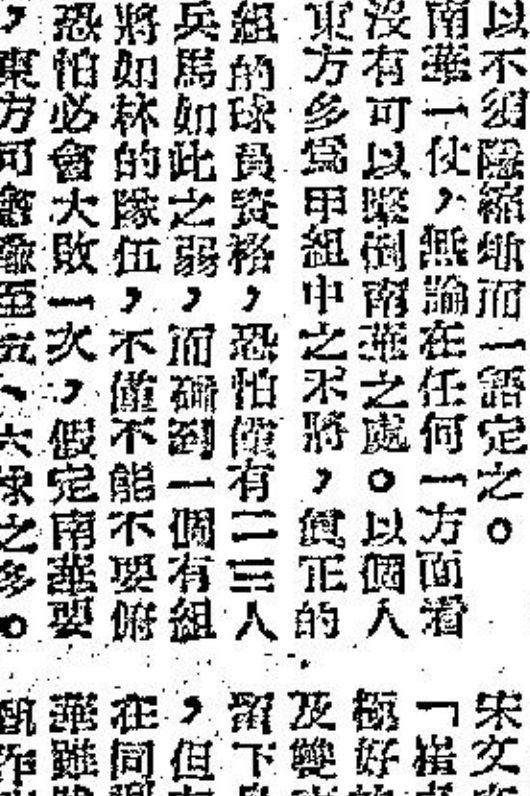 以不須隱縮地而一語定之。
南華一仗，無論在任何一方面看
沒有可以擊倒南華之處。以個人
東方多為甲組中之不將，眞正的
組的球員資格，恐怕僅有二三人
兵馬如此之弱，而碰到一個有組
將如林的隊伍，不僅不能不要俯
恐怕必會大敗一次，假定南華要
，東方可會輸至五、六球之多。
宋文
「崔
極好
及雙
留下
，但
在同
華雖